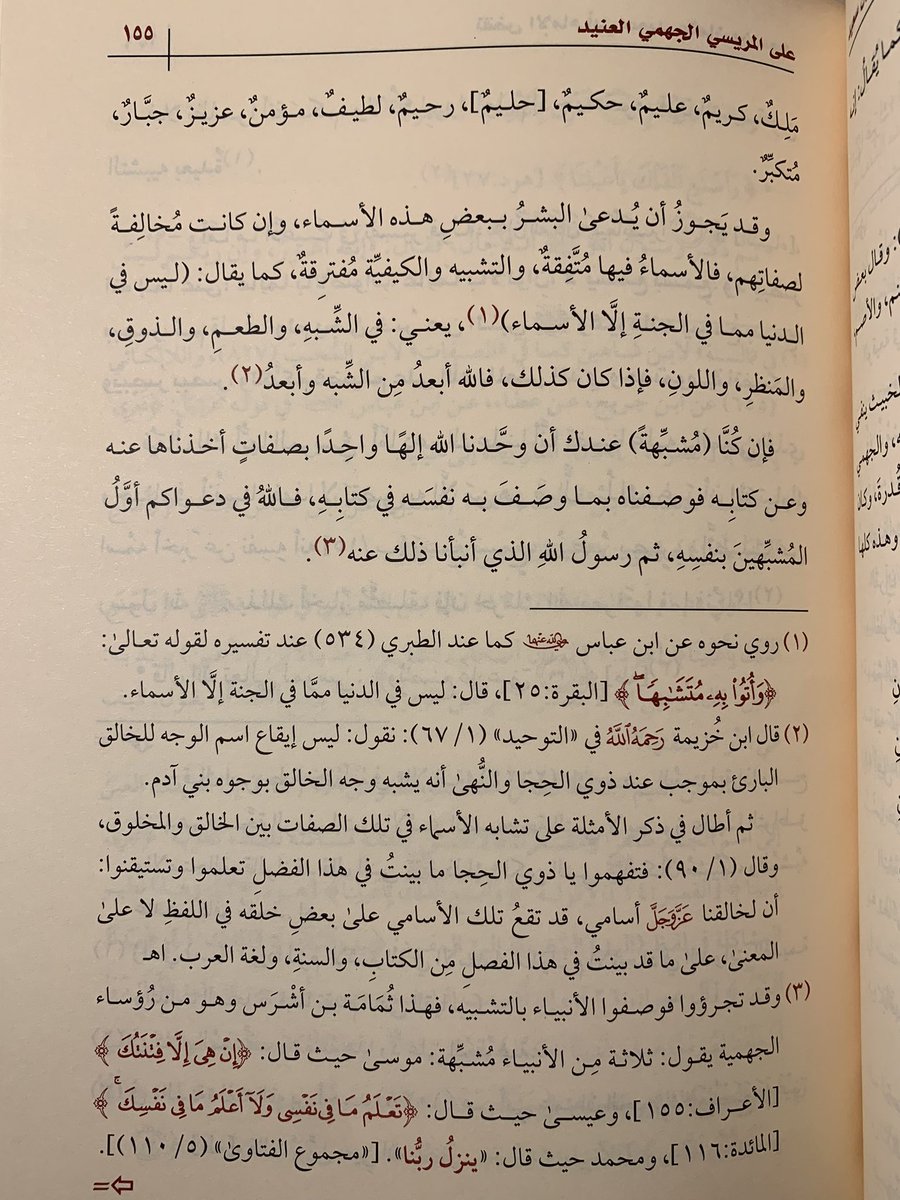 على المريسي الجهمي العنيد ١٥٥
مَلِكٌ، كريمٌ، عليمٌ، حكيمٌ، [حليمٌ]، رحيمٌ، لطيفٌ، مؤمنٌ، عزيزٌ، جبَّارٌ،
مُتكبِّرٌ.
وقد يَجوزُ أن يُدعىٰ البشرُ ببعضِ هذه الأسماء، وإن كانت مُخالِفةً
لصفاتِهم، فالأسماءُ فيها مُتَّفِقةٌ، والتشبيه والكيفيَّة مُفترِقةٌ، كما يقال: (ليس في
الدنيا مما في الجنةِ إلَّا الأسماء)(١)، يعني: في الشِّبهِ، والطعمِ، والذوقِ،
والمَنظرِ، واللونِ، فإذا كان كذلك، فالله أبعدُ مِن الشِّبه وأبعدُ(٢).
فإن كُنَّا (مُشبِّهةً) عندك أن وحَّدنا الله إلهًا واحِدًا بصفاتٍ أخذناها عنه
وعن كتابِه فوصفناه بما وصَفَ به نفسَه في كتابِهِ، فاللهُ في دعواكم أوَّلُ
المُشبِّهينَ بنفسِهِ، ثم رسولُ اللهِ الذي أنبأنا ذلك عنه(٣).
(١) روي نحوه عن ابن عباس رضي الله عنهما كما عند الطبري (٥٣٤) عند تفسيره لقوله تعالىٰ:
﴿وَأُتُواْ بِهِۦ مُتَشَٰبِهٗاۖ﴾ [البقرة:٢٥]، قال: ليس في الدنيا ممَّا في الجنة إلَّا الأسماء.
(٢) قال ابن خُزيمة رَحِمَهُ ٱللَّهُ في «التوحيد» (١/ ٦٧): نقول: ليس إيقاع اسم الوجه للخالق
البارئ بموجب عند ذوي الحِجا والنُّهىٰ أنه يشبه وجه الخالق بوجوه بني آدم.
ثم أطال في ذكر الأمثلة علىٰ تشابه الأسماء في تلك الصفات بين الخالق والمخلوق،
وقال (١/ ٩٠): فتفهموا يا ذوي الحِجا ما بينتُ في هذا الفضلِ تعلموا وتستيقنوا:
أن لخالقنا عَزَّوَجَلَّ أسامي، قد تقعُ تلك الأسامي علىٰ بعضِ خلقه في اللفظِ لا علىٰ
المعنىٰ، علىٰ ما قد بينتُ في هذا الفصلِ مِن الكتابِ، والسنةِ، ولغة العرب. اهـ
(٣) وقد تجرؤوا فوصفوا الأنبياء بالتشبيه، فهذا ثُمَامَة بن أشْرَس وهو من رُؤساء
الجهمية يقول: ثلاثة مِن الأنبياء مُشبِّهة: موسىٰ حيث قال: ﴿إِنْ هِىَ إِلَّا فِتْنَتُكَ﴾
[الأعراف:١٥٥]، وعيسىٰ حيث قال: ﴿تَعْلَمُ مَا فِى نَفْسِى وَلَآ أَعْلَمُ مَا فِى نَفْسِكَۚ﴾
[المائدة:١١٦]، ومحمد حيث قال: «ينزلُ ربُّنا». [«مجموع الفتاوىٰ» (٥/ ١١٠)].